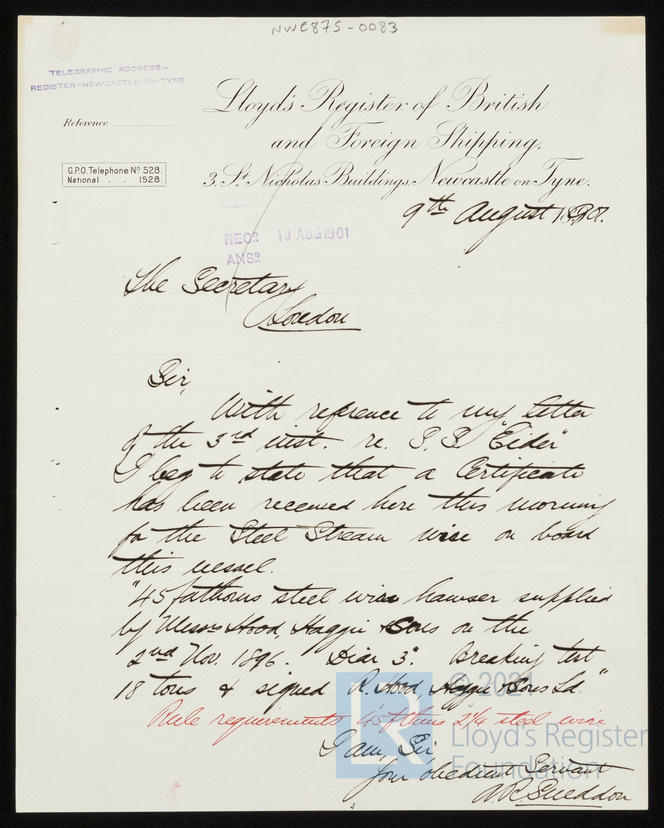 NWC875-0083
TELEGRAPHIC ADDRESS:-
REGISTER-NEWCASTLE-ON-TYNE.
Lloyd's Register of British
and Foreign Shipping.
Reference
G.P.O. Telephone No 528.
National . . 1528.
3, St. Nicholas Buildings, Newcastle on Tyne.
9th August 1901.
RECD. 10 AUG 1901
ANSD.
The Secretary
London
Sir,
With reference to my letter
of the 3rd inst. re. S.S. "Eider"
I beg to state that a Certificate
has been received here this morning
for the Steel Stream wire on board
this vessel.
"45 fathoms steel wire hawser supplied
by Messrs Hood, Haggie & Sons on the
2nd Nov. 1896. Diar 3". Breaking test
18 tons & signed R. Hood, Haggie & Sons Ld"
Rule requirements 45 fthms 2¼ steel wire
I am, Sir,
Your obedient Servant
A.R. Sneddon
© 2021
Lloyd's Register
Foundation
LR